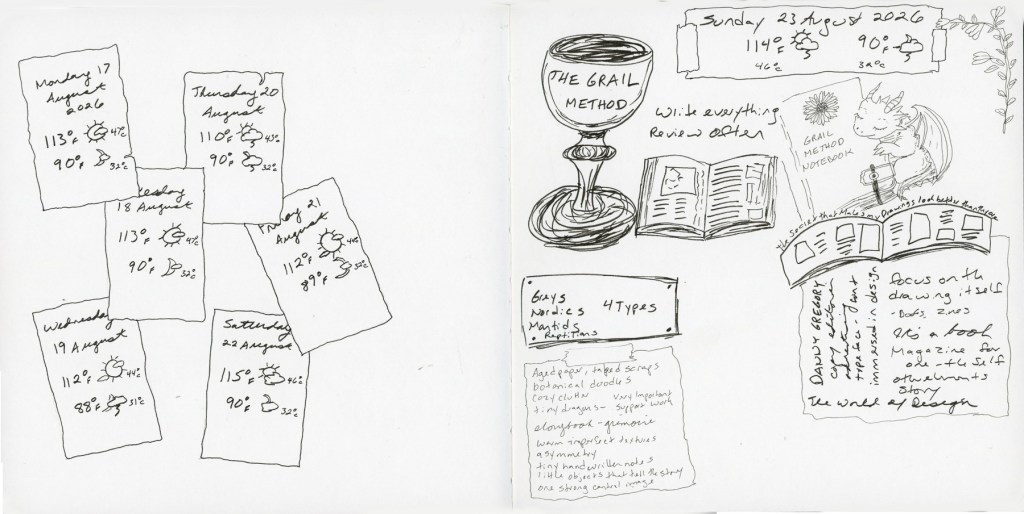 Monday 17
August
2026
113°F 47°C
90°F 32°C
Thursday 20
August
110°F 43°C
90°F 32°C
18 August
113°F 47°C
90°F 32°C
Friday 21
August
112°F 44°C
89°F 32°C
Wednesday
19 August
112°F 44°C
88°F 31°C
Satterday
22 August
115°F 46°C
90°F 32°C
Sunday 23 August 2026
114°F 90°F
46°C
THE GRAIL
METHOD
Write everything
Review often
GRAIL
METHOD
NOTEBOOK
the Secret that Makes my Drawings look better than
Greys
Nordics 4 Types
Mantids
Reptilians
Aged paper, taped scraps
botanical doodles
cozy clutter very important
tiny dragons - support work
storybook - grimoire
warm imperfect textures
asymmetry
tiny handwritten notes
little objects that tell the story
one strong central image
DANNY GREGORY
copy
advertising
typeface - font
immersed in design
focus on th
drawing itself
- books, zines
it's a book
Magazine for
one - the self
other elements
story
The World of Design